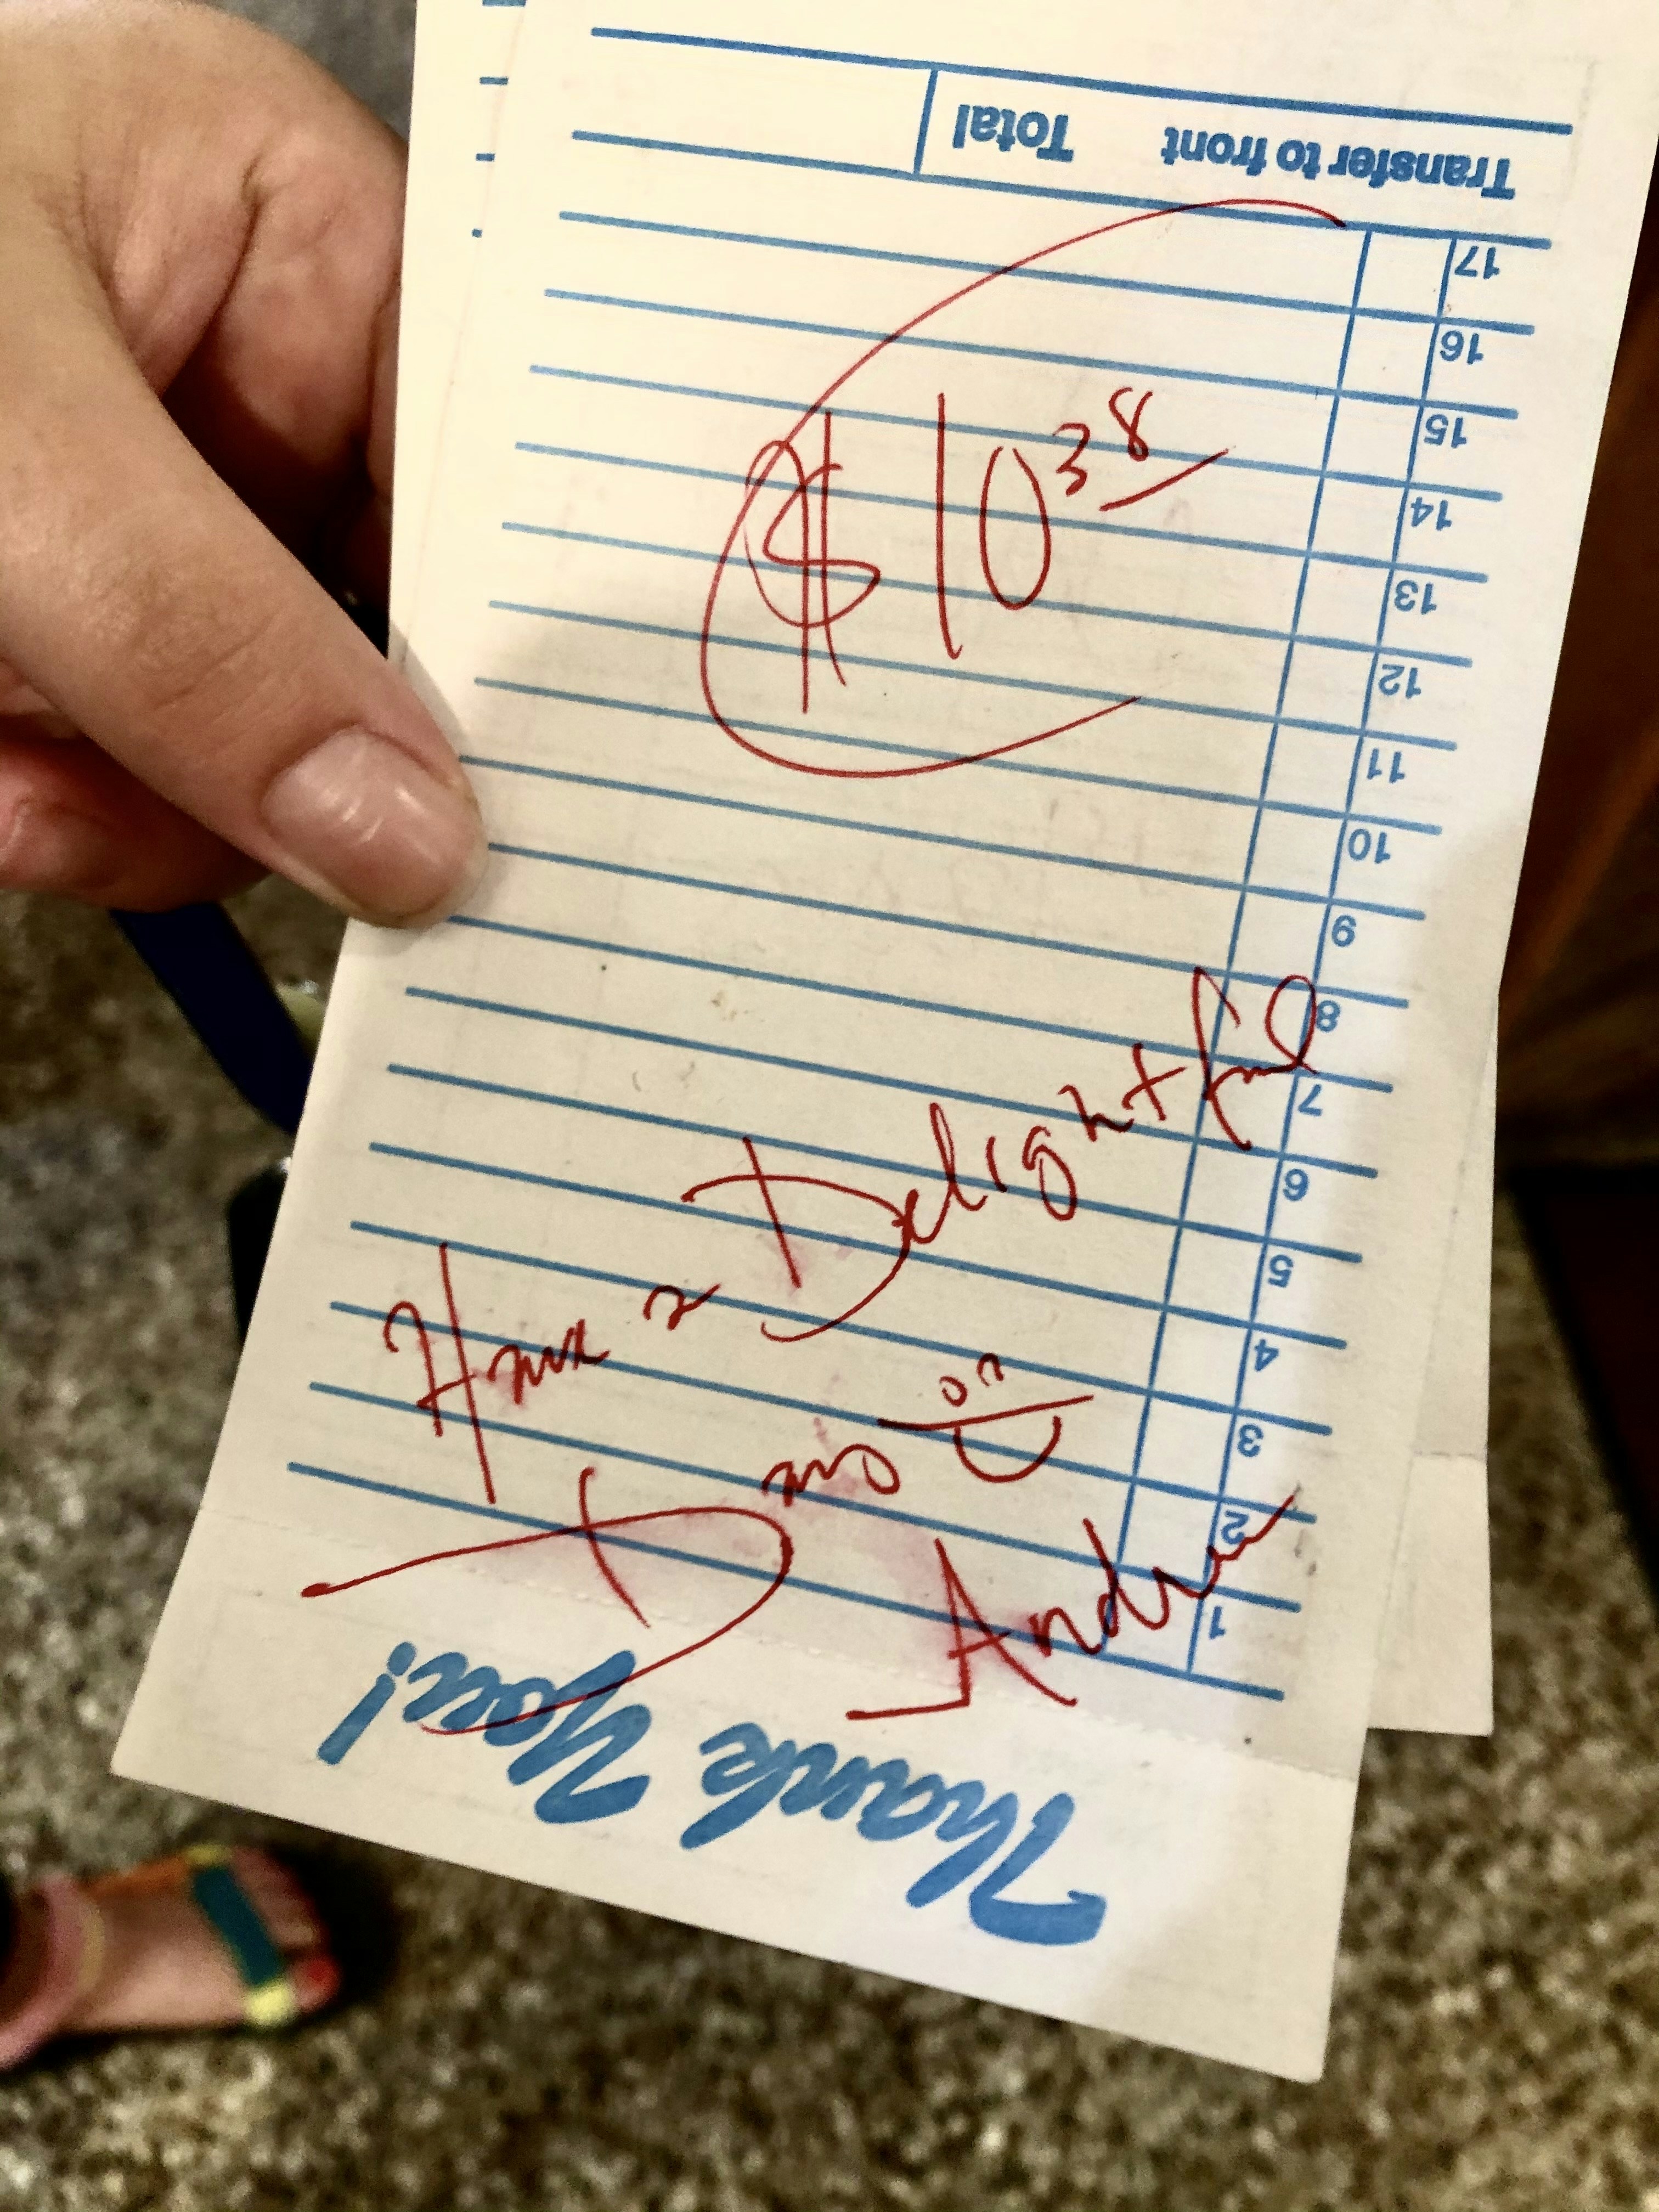 Transfer to front Total
17
16
15
$10 38
14
13
12
11
10
9
8
7
Have a Delightful
6
5
4
3
2
1
Thank You!